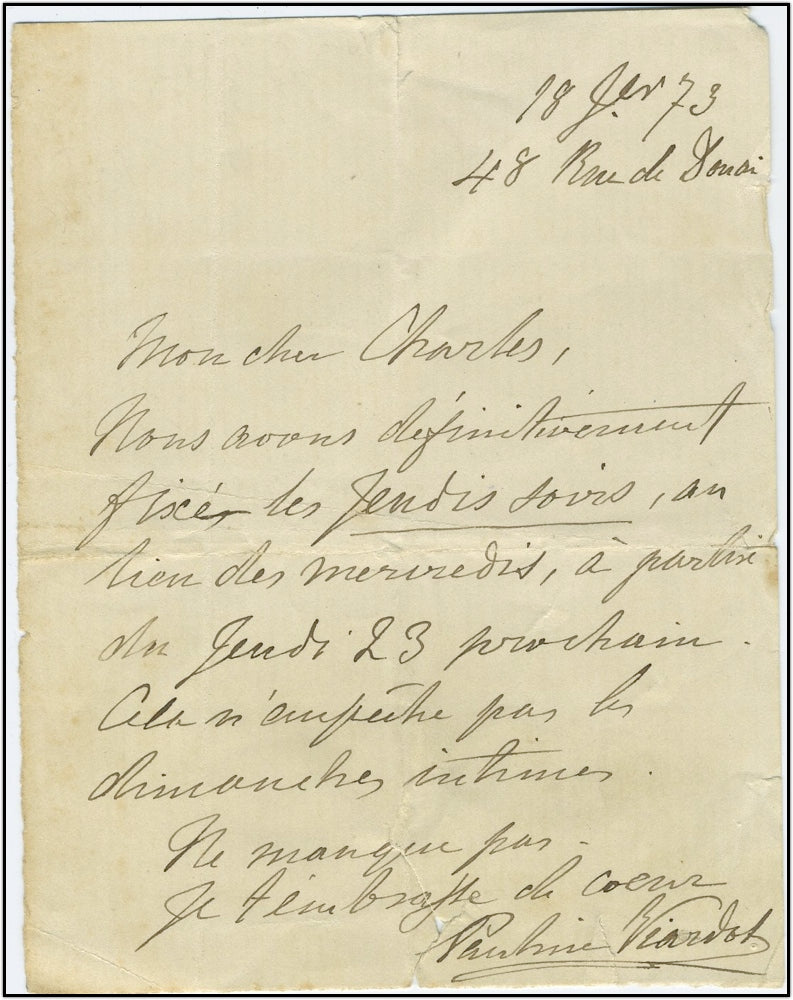 18 Jer 73
48 Rue de Douai
Mon cher Charles,
Nous avons définitivement
fixés les Jeudis soirs, au
lieu des mercredis, à partir
du Jeudi 23 prochain.
Cela n'empêche pas les
dimanches intimes.
Ne manque pas.
Je t'embrasse de cœur
Pauline Viardot